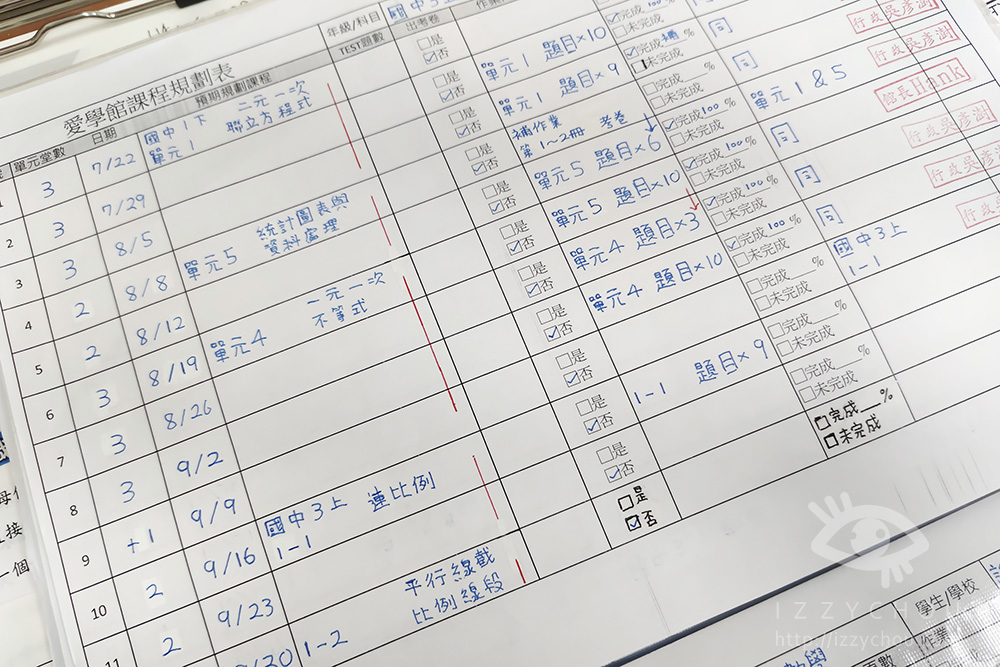 愛學館課程規劃表
年級/科目 國中3上
單元堂數 日期 預期規劃課程 TEST題數 出考卷 作業
3 7/22 國中1下 二元一次
單元1 聯立方程式
□是
☑否
單元1 題目×10
☑完成 100 %
□未完成
2 3 7/29
□是
☑否
單元1 題目×9
☑完成 %
□未完成
同
行政 吳彥澍
3 3 8/5
□是
☑否
補作業 考卷
第1~2冊
□完成 %
□未完成
同
行政 吳彥澍
4 2 8/8 單元5 統計圖表與
資料處理
□是
☑否
單元5 題目×6
☑完成 100 %
□未完成
單元1 & 5
館長 Hank
5 2 8/12
□是
☑否
單元5 題目×10
☑完成 100 %
□未完成
同
行政 吳彥澍
6 3 8/19 單元4 一元一次
不等式
□是
☑否
單元4 題目×3
☑完成 100 %
□未完成
同
行政 吳彥澍
7 3 8/26
□是
☑否
單元4 題目×10
☑完成 100 %
□未完成
同
行政
8 3 9/2
□是
☑否
□完成 %
□未完成
國中3上
1-1
9 +1 9/9
□是
☑否
1-1 題目×9
□完成 %
□未完成
10 2 9/16 國中3上 連比例
1-1
□是
☑否
□完成 %
□未完成
11 2 9/23
□是
☑否
□完成 %
□未完成
9/30 1-2 平行線截
比例線段
□是
☑否
學生/學校
作業
IZZYCHOU
http://izzychou